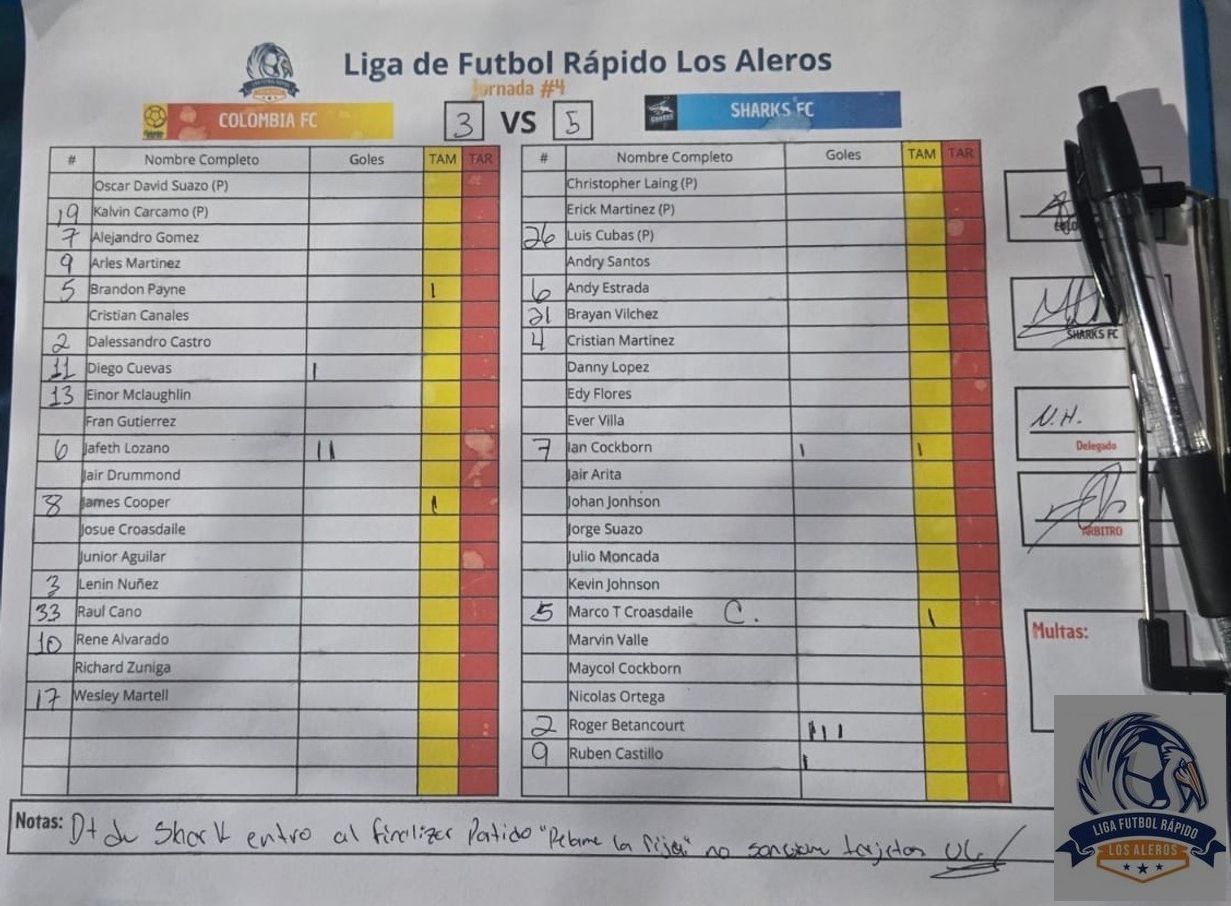 Liga de Futbol Rápido Los Aleros
Jornada #4
COLOMBIA FC 3 VS 5 SHARKS FC
# Nombre Completo Goles TAM TAR # Nombre Completo Goles TAM TAR
Oscar David Suazo (P) Christopher Laing (P)
19 Kalvin Carcamo (P) Erick Martinez (P)
7 Alejandro Gomez 26 Luis Cubas (P)
9 Arles Martinez Andry Santos
5 Brandon Payne I 6 Andy Estrada
Cristian Canales 21 Brayan Vilchez
2 Dalessandro Castro 4 Cristian Martinez
11 Diego Cuevas I Danny Lopez
13 Einor Mclaughlin Edy Flores
Fran Gutierrez Ever Villa
6 Jafeth Lozano II 7 Ian Cockborn I I
Jair Drummond Jair Arita
8 James Cooper I Johan Jonhson
Josue Croasdaile Jorge Suazo
Junior Aguilar Julio Moncada
3 Lenin Nuñez Kevin Johnson
33 Raul Cano 5 Marco T Croasdaile C. I
10 Rene Alvarado Marvin Valle
Richard Zuniga Maycol Cockborn
17 Wesley Martell Nicolas Ortega
2 Roger Betancourt III
9 Ruben Castillo I
SHARKS FC
N.H.
Delegado
ARBITRO
Multas:
Notas: Dt de Shark entro al finalizar Partido no tarjetas
LIGA FUTBOL RÁPIDO
LOS ALEROS